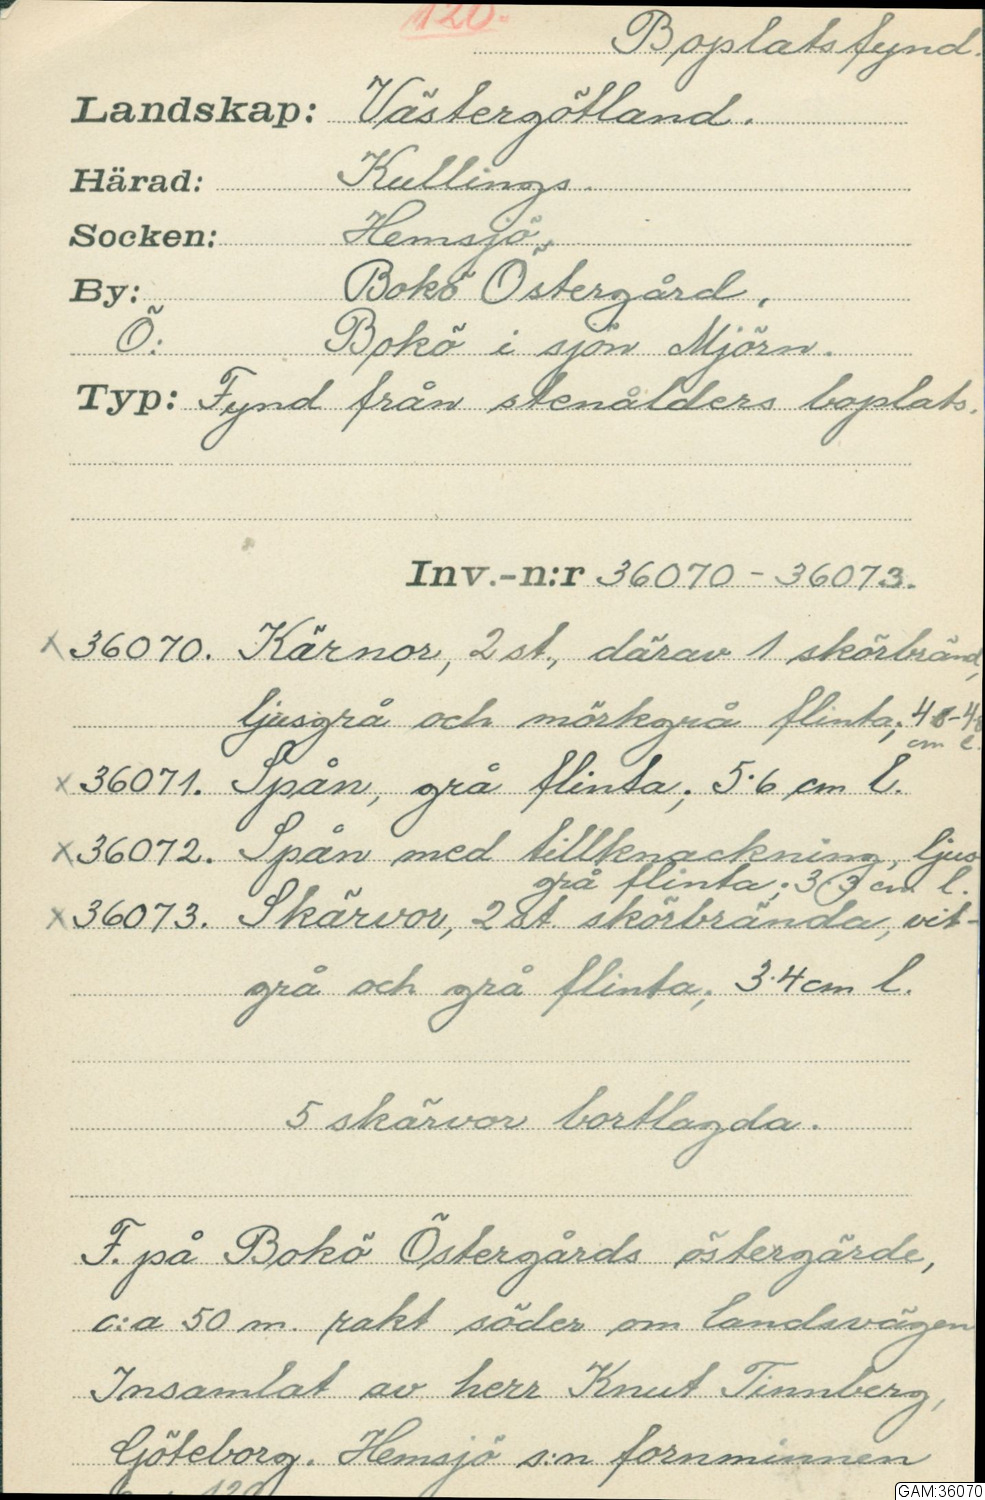 120.
Boplatsfynd.
Landskap: Västergötland.
Härad: Kullings.
Socken: Hemsjö.
By: Bokö Östergård.
Ö: Bokö i sjön Mjörn.
Typ: Fynd från stenålders boplats.
Inv.-n:r 36070 - 36073.
x 36070. Kärnor, 2 st., därav 1 skörbränd,
ljusgrå och mörkgrå flinta;
cm l.
x 36071. Spån, grå flinta; 5.6 cm l.
x 36072. Spån med tillknackning, ljus
grå flinta; 3.3 cm l.
x 36073. Skärvor, 2 st. skörbrända, vit-
grå och grå flinta; 3.4 cm l.
5 skärvor bortlagda.
F. på Bokö Östergårds östergärde,
c:a 50 m. rakt söder om landsvägen
Insamlat av herr Knut Tinnberg,
Göteborg. Hemsjö s:n fornminnen
120
GAM:36070